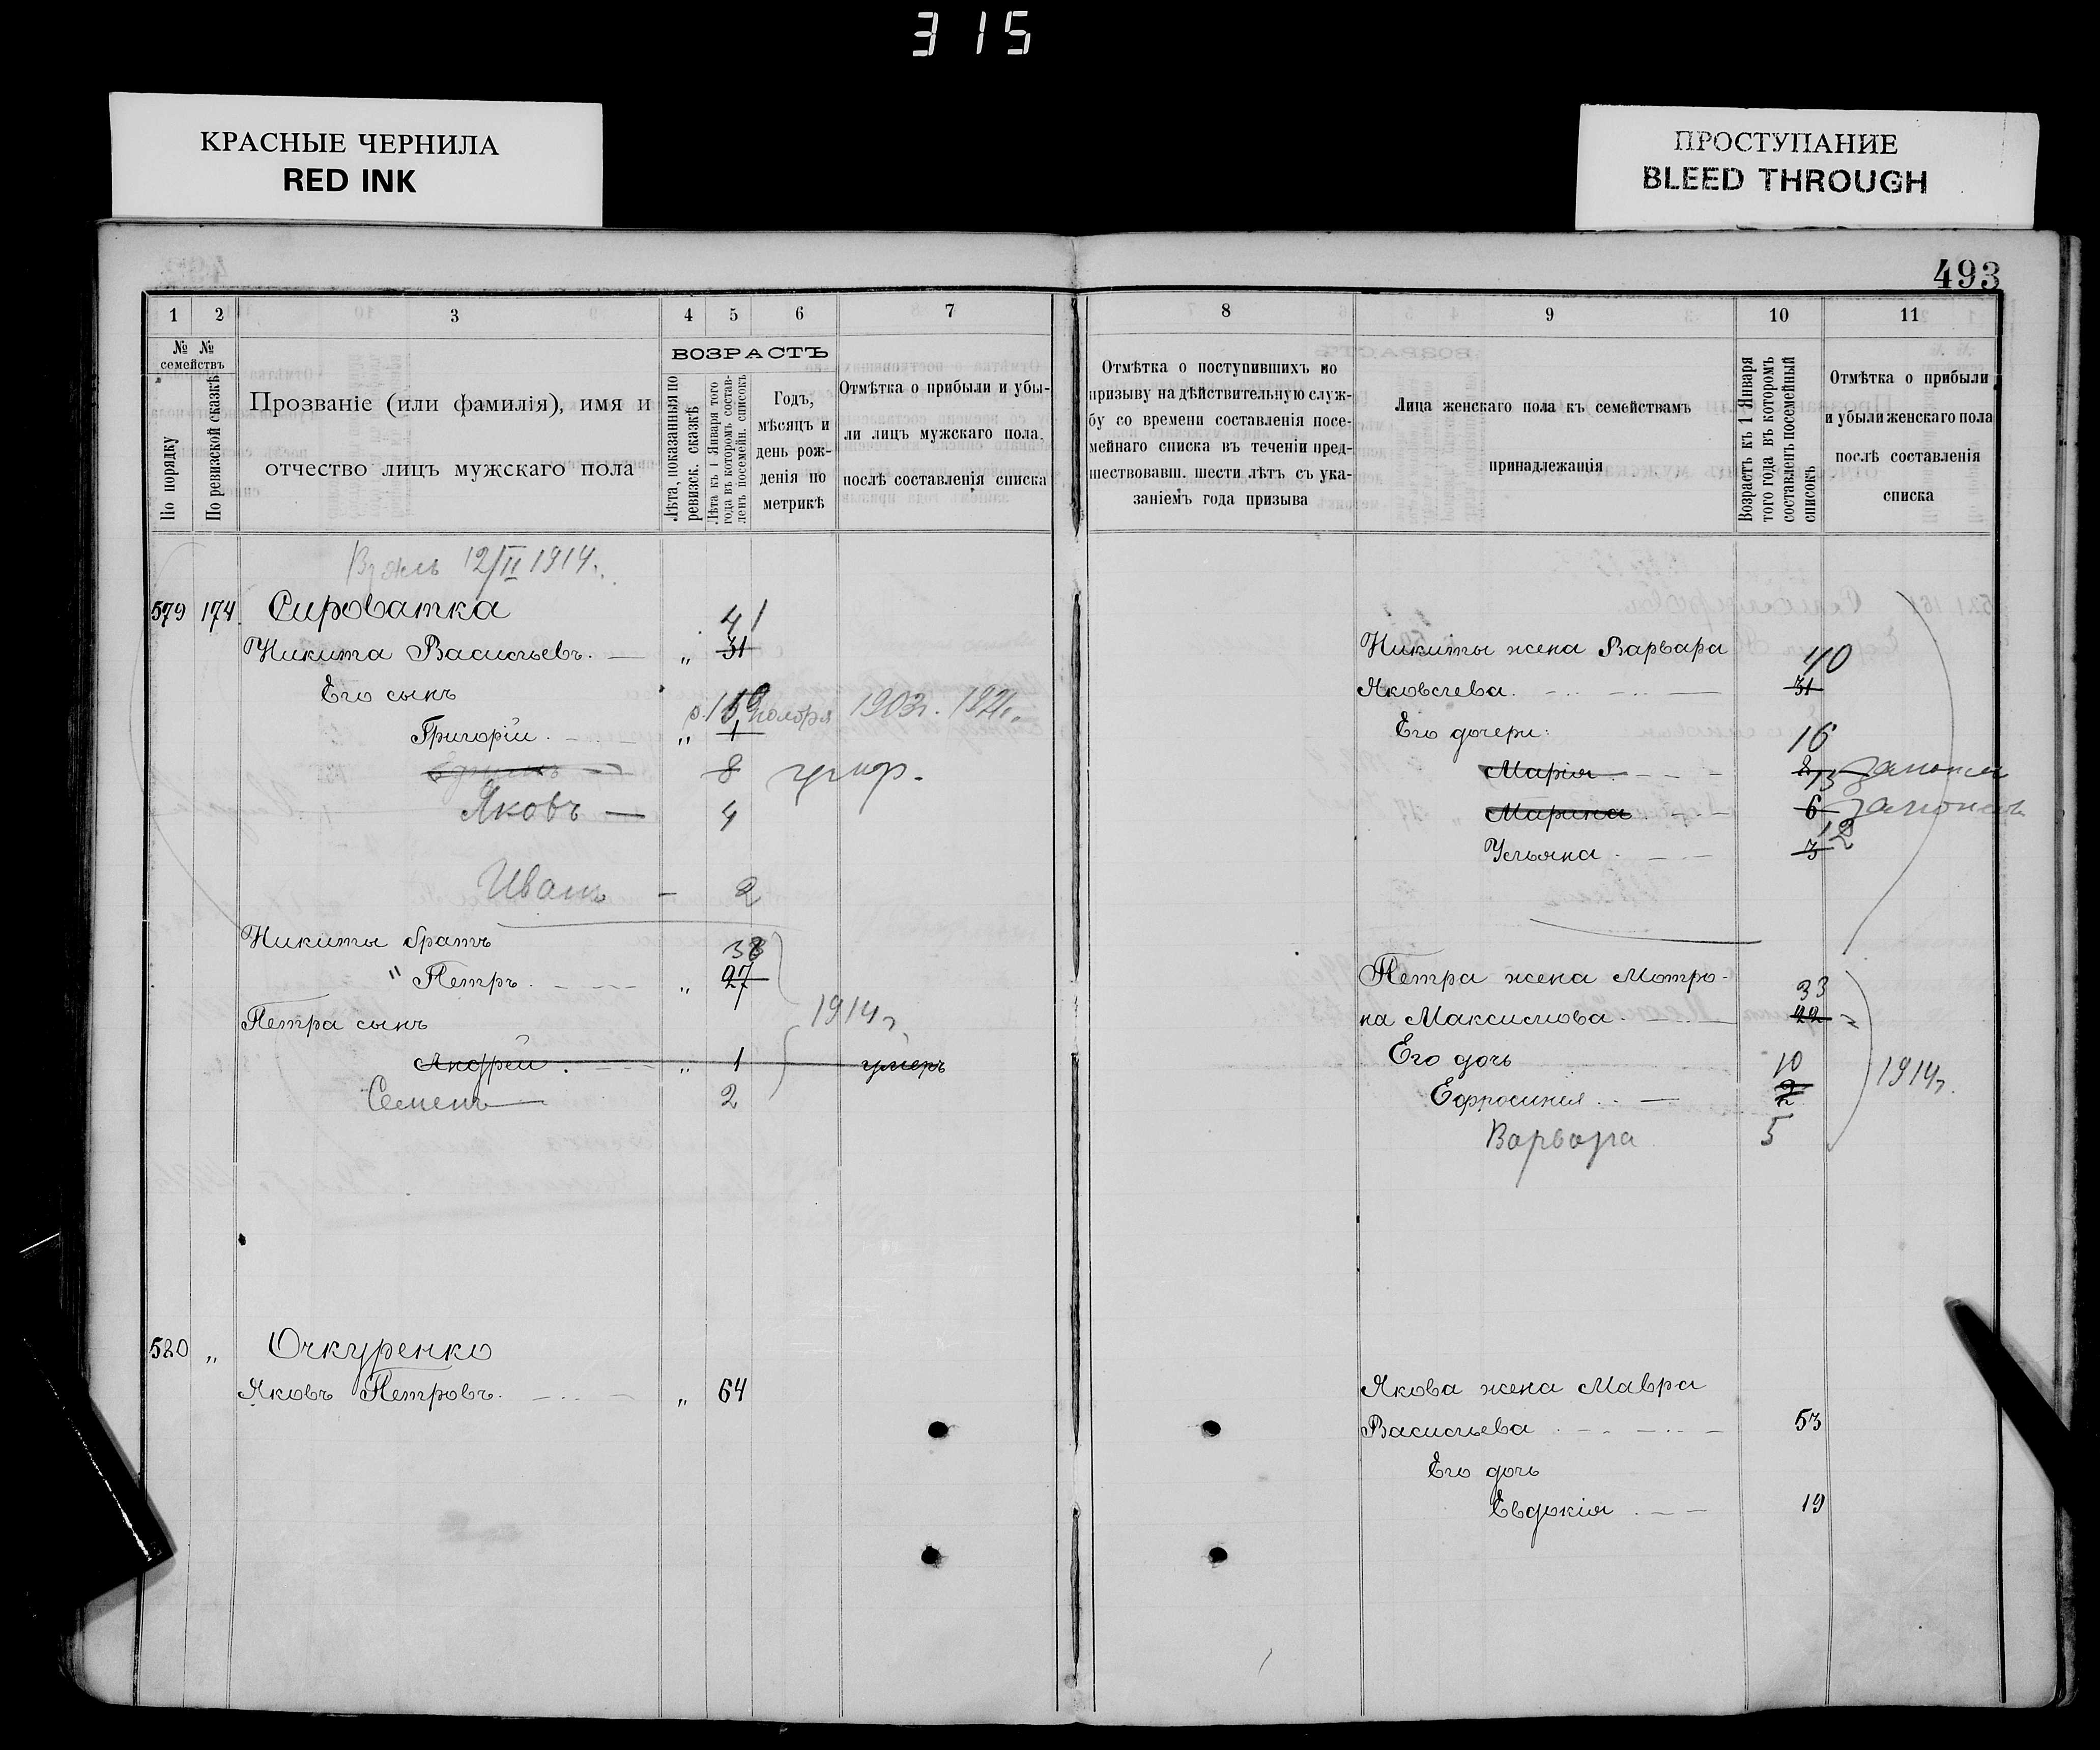 315
КРАСНЫЕ ЧЕРНИЛА
RED INK
ПРОСТУПАНИЕ
BLEED THROUGH
493
1 2 3 4 5 6 7
№ № семействъ
По порядку
По ревизской сказкѣ
Прозваніе (или фамилія), имя и
отчество лицъ мужскаго пола
ВОЗРАСТЪ
Лѣта, показанныя по
ревизск. сказкѣ
Лѣта къ 1 Января того
года въ которомъ состав-
ленъ посемейн. списокъ
Годъ,
мѣсяцъ и
день рож-
денія по
метрикѣ
Отмѣтка о прибыли и убы-
ли лицъ мужскаго пола,
послѣ составленія списка
12/II 1914.
579 174. Сироватка 41
Никита Васильевъ. „ 31
Его сынъ
р. 10 ноября 1903г. 1921.
Григорій. „ 1
8 умер.
Яковъ — 4
Иванъ — 2
Никиты братъ 38
" Петръ. „ 27
Петра сынъ 1914г.
Андрей. „ 1 умеръ
Семенъ 2
520 „ Очкуренко
Яковъ Петровъ. „ 64
8 9 10 11
Отмѣтка о поступившихъ по
призыву на дѣйствительную служ-
бу со времени составленія посе-
мейнаго списка въ теченіи пред-
шествовавш. шести лѣтъ съ ука-
заніемъ года призыва
Лица женскаго пола къ семействамъ
принадлежащія
Возрастъ къ 1 Января
того года въ которомъ
составленъ посемейный
списокъ
Отмѣтка о прибыли
и убыли женскаго пола
послѣ составленія
списка
Никиты жена Варвара 40
Яковлева. 31
Его дочери: 16
Марія
Марина 6
12
Ульяна. 3
Петра жена Мотро-
33
на Максимова. 22
Его дочь 10
Ефросинія. 2 1914г.
Варвара 5
Якова жена Мавра
Васильева 53
Его дочь
Евдокія 19